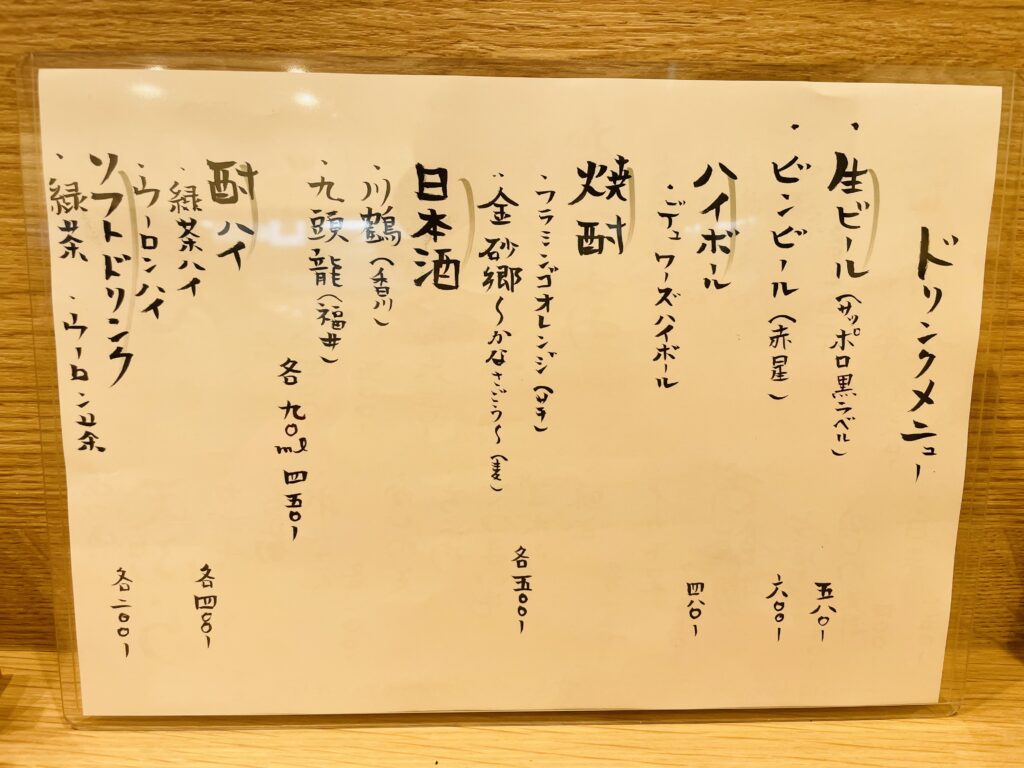 ドリンクメニュー
・生ビール（サッポロ黒ラベル） 五八〇-
・ビンビール（赤星） 六〇〇-
ハイボール
・デュワーズハイボール 四八〇-
焼酎
・フラミンゴオレンジ（芋）
・金砂郷〜かなさごう〜（麦）
各五〇〇-
日本酒
・川鶴（香川）
・九頭龍（福井）
各九〇ml四五〇-
酎ハイ
・緑茶ハイ
・ウーロンハイ
各四〇〇-
ソフトドリンク
・緑茶 ・ウーロン茶
各二〇〇-